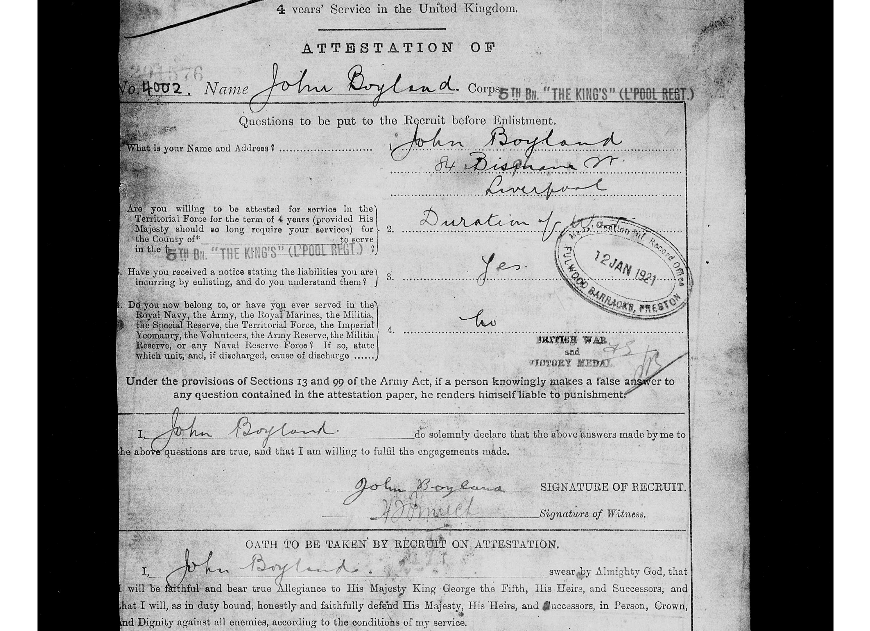 4 years' Service in the United Kingdom.
ATTESTATION OF
No. 4002. Name John Boyland. Corps 5TH BN. "THE KING'S" (L'POOL REGT.)
Questions to be put to the Recruit before Enlistment.
What is your Name and Address? .................... 1. John Boyland
84
Liverpool
Are you willing to be attested for service in the
Territorial Force for the term of 4 years (provided His
Majesty should so long require your services) for
the County of* to serve
in the 5TH BN. "THE KING'S" (L'POOL REGT.) ?
2. Duration of
Have you received a notice stating the liabilities you are
incurring by enlisting, and do you understand them?
3. Yes.
Do you now belong to, or have you ever served in the
Royal Navy, the Army, the Royal Marines, the Militia,
the Special Reserve, the Territorial Force, the Imperial
Yeomanry, the Volunteers, the Army Reserve, the Militia
Reserve, or any Naval Reserve Force? If so, state
which unit, and, if discharged, cause of discharge ......
4. No
Record Office
12 JAN 1921
FULWOOD BARRACKS, PRESTON
BRITISH WAR
and
VICTORY MEDAL
Under the provisions of Sections 13 and 99 of the Army Act, if a person knowingly makes a false answer to
any question contained in the attestation paper, he renders himself liable to punishment.
I, John Boyland. do solemnly declare that the above answers made by me to
the above questions are true, and that I am willing to fulfil the engagements made.
John Boyland SIGNATURE OF RECRUIT.
Signature of Witness.
OATH TO BE TAKEN BY RECRUIT ON ATTESTATION.
I, John Boyland. swear by Almighty God, that
I will be faithful and bear true Allegiance to His Majesty King George the Fifth, His Heirs, and Successors, and
that I will, as in duty bound, honestly and faithfully defend His Majesty, His Heirs, and Successors, in Person, Crown,
and Dignity against all enemies, according to the conditions of my service.